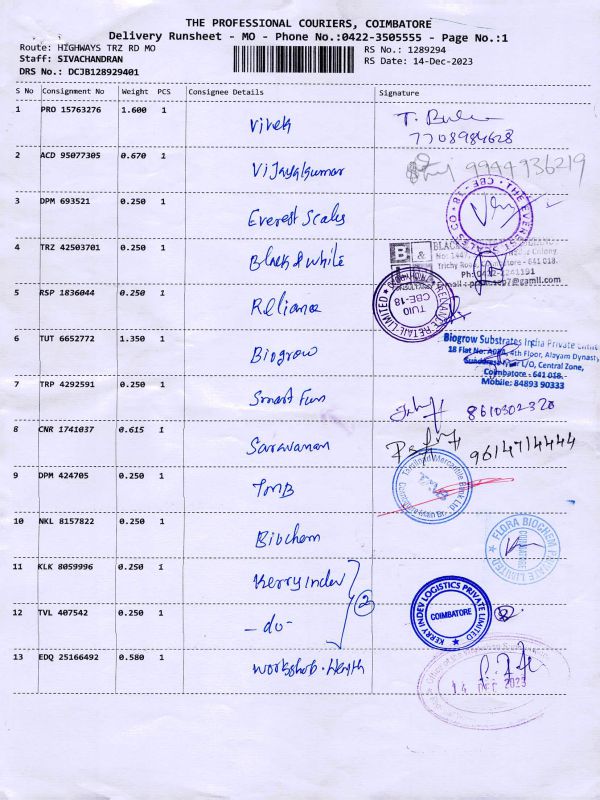 THE PROFESSIONAL COURIERS, COIMBATORE
Delivery Runsheet - MO - Phone No.:0422-3505555 - Page No.:1
Route: HIGHWAYS TRZ RD MO
RS No.: 1289294
Staff: SIVACHANDRAN
RS Date: 14-Dec-2023
DRS No.: DCJB128929401
S No Consignment No Weight PCS Consignee Details Signature
1 PRO 15763276 1.600 1 Vivek
7708984628
2 ACD 95077305 0.670 1 Vijayakumar 9944936219
3 DPM 693521 0.250 1 Everest Scales
THE EVEREST SCALES CO. CBE - 18.
4 TRZ 42503701 0.250 1 Black & White
B & BLACK
No: 1447, Colony
Trichy Road, - 641 018.
5 RSP 1836044 0.250 1 Reliance
RELIANCE RETAIL LIMITED
TUIO
CBE-18
6 TUT 6652772 1.350 1 Biogrow
Biogrow Substrates India Private
18 Flat No: 4th Floor, Alayam Dynasty
L/O, Central Zone,
Coimbatore - 641 018.
Mobile: 84893 90333
7 TRP 4292591 0.250 1 Smart Fun
8610302328
8 CNR 1741037 0.615 1 Saravanan
9614714444
9 DPM 424705 0.250 1 TMB
Tamilnad Mercantile Bank Ltd.
10 NKL 8157822 0.250 1 Biochem
FLORA BIOCHEM PRIVATE LIMITED
11 KLK 8059996 0.250 1 Kerry Indev
2
KERRY INDEV LOGISTICS PRIVATE LIMITED
COIMBATORE
12 TVL 407542 0.250 1 - do -
13 EDQ 25166492 0.580 1
14 DEC 2023